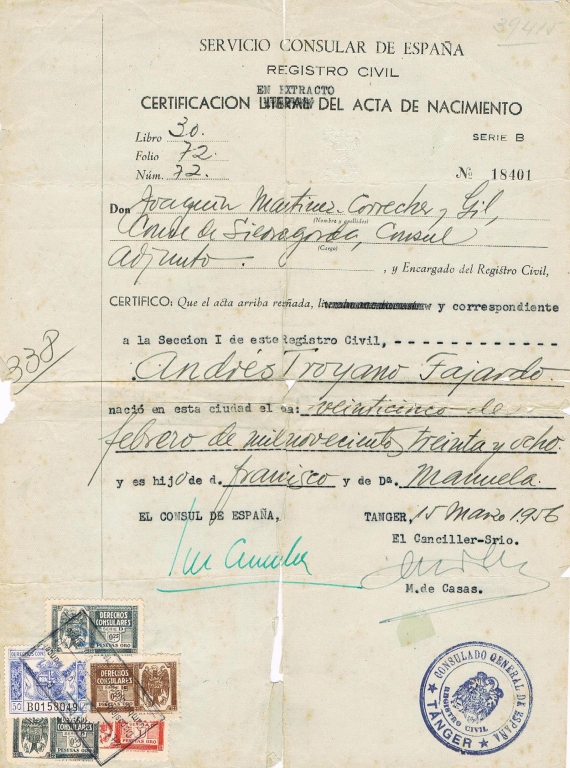 39415
SERVICIO CONSULAR DE ESPAÑA
REGISTRO CIVIL
EN EXTRACTO
CERTIFICACION LITERAL DEL ACTA DE NACIMIENTO
Libro 30.
SERIE B
Folio 72.
Núm. 72.
Nº 18401
Don Joaquín Martinez-Correcher y Gil,
(Nombre y apellidos)
Conde de Sierragorda, Consul
(Cargo)
adjunto. , y Encargado del Registro Civil,
CERTIFICO: Que el acta arriba reseñada, y correspondiente
a la Seccion I de este Registro Civil, - - - - - - - - - - - - -
338
Andrés Troyano Fajardo.
nació en esta ciudad el ea: veinticinco de
febrero de mil novecientos treinta y ocho.
y es hijo de d. francisco y de Dª. Manuela.
EL CONSUL DE ESPAÑA,
TANGER, 15 Marzo 1956
El Canciller-Srio.
M. de Casas.
DERECHOS
CONSULARES
0,25
PESETAS ORO
DERECHOS CONSULARES
30
B0158049
DERECHOS
CONSULARES
PESETAS ORO
CONSULARES
PESETAS ORO
PESETAS ORO
CONSULADO GENERAL DE ESPAÑA
REGISTRO CIVIL
★ TÁNGER ★